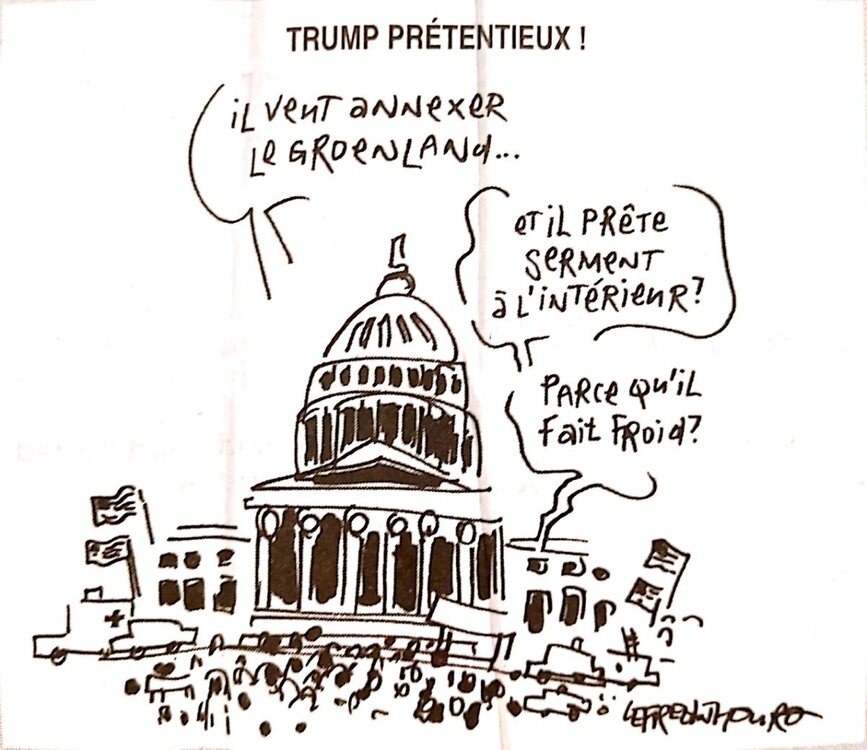 TRUMP PRÉTENTIEUX !
il veut annexer
le GROENLAND...
et il prête
serment
à l'intérieur?
Parce qu'il
fait froid?
LEFREDTHOURON